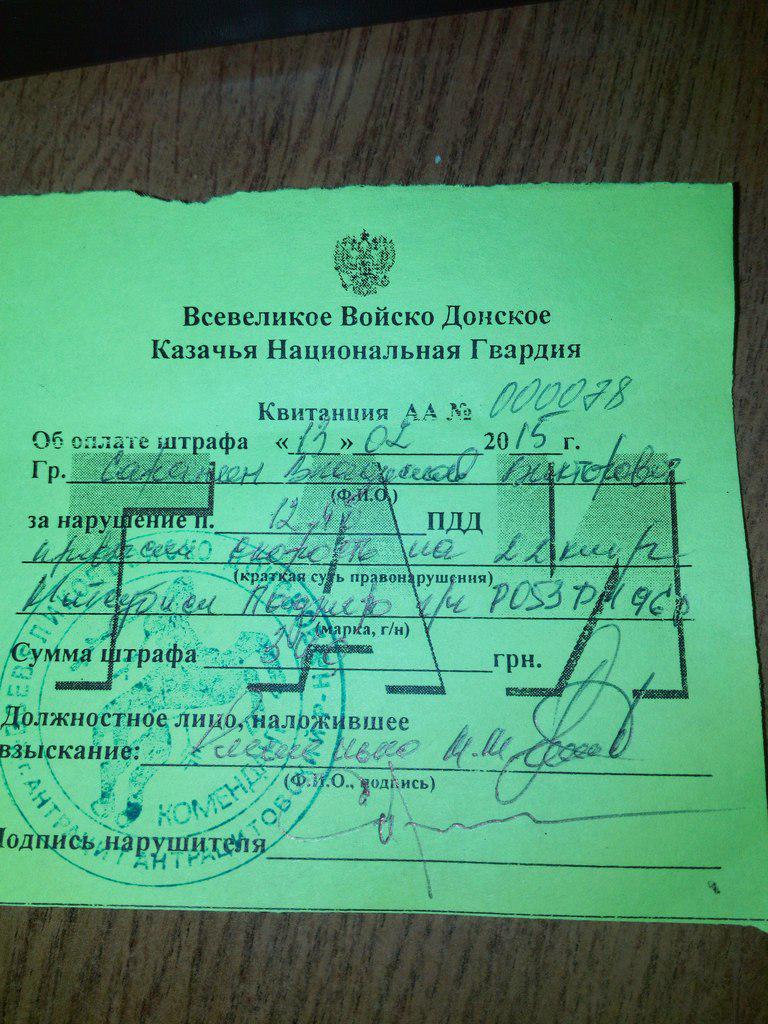 Всевеликое Войско Донское
Казачья Национальная Гвардия
Квитанция АА № 000078
Об оплате штрафа «13» 02 2015 г.
Гр. Викторович
(Ф.И.О.)
за нарушение п. 12. ПДД
скорость на 22 км/ч
(краткая суть правонарушения)
Митсубиси Паджеро г/н Р053 96
(марка, г/н)
Сумма штрафа 340 грн.
ГАИ
Должностное лицо, наложившее
взыскание: М.М.
(Ф.И.О., подпись)
Подпись нарушителя
КОМЕНДАНТ
Г. АНТРАЦИТ АНТРАЦИТОВСКИЙ Р-Н